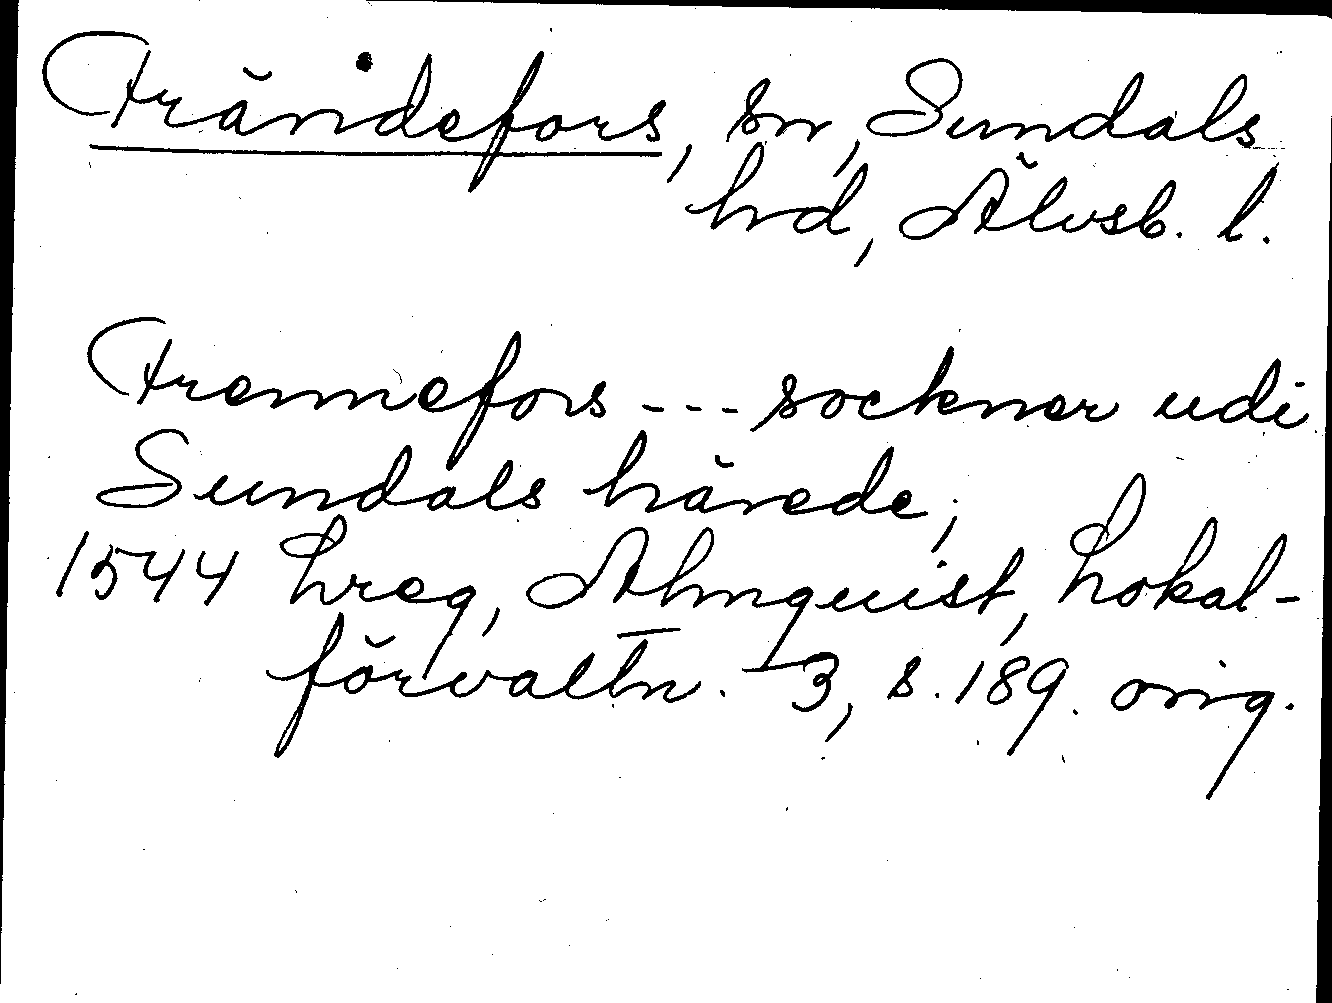 Frändefors, sn, Sundals
hd, Älvsb. l.
Frennefors --- sockner udi
Sundals härede,
1544 Lreg, Almquist, Lokal-
förvaltn. 3, s. 189. orig.